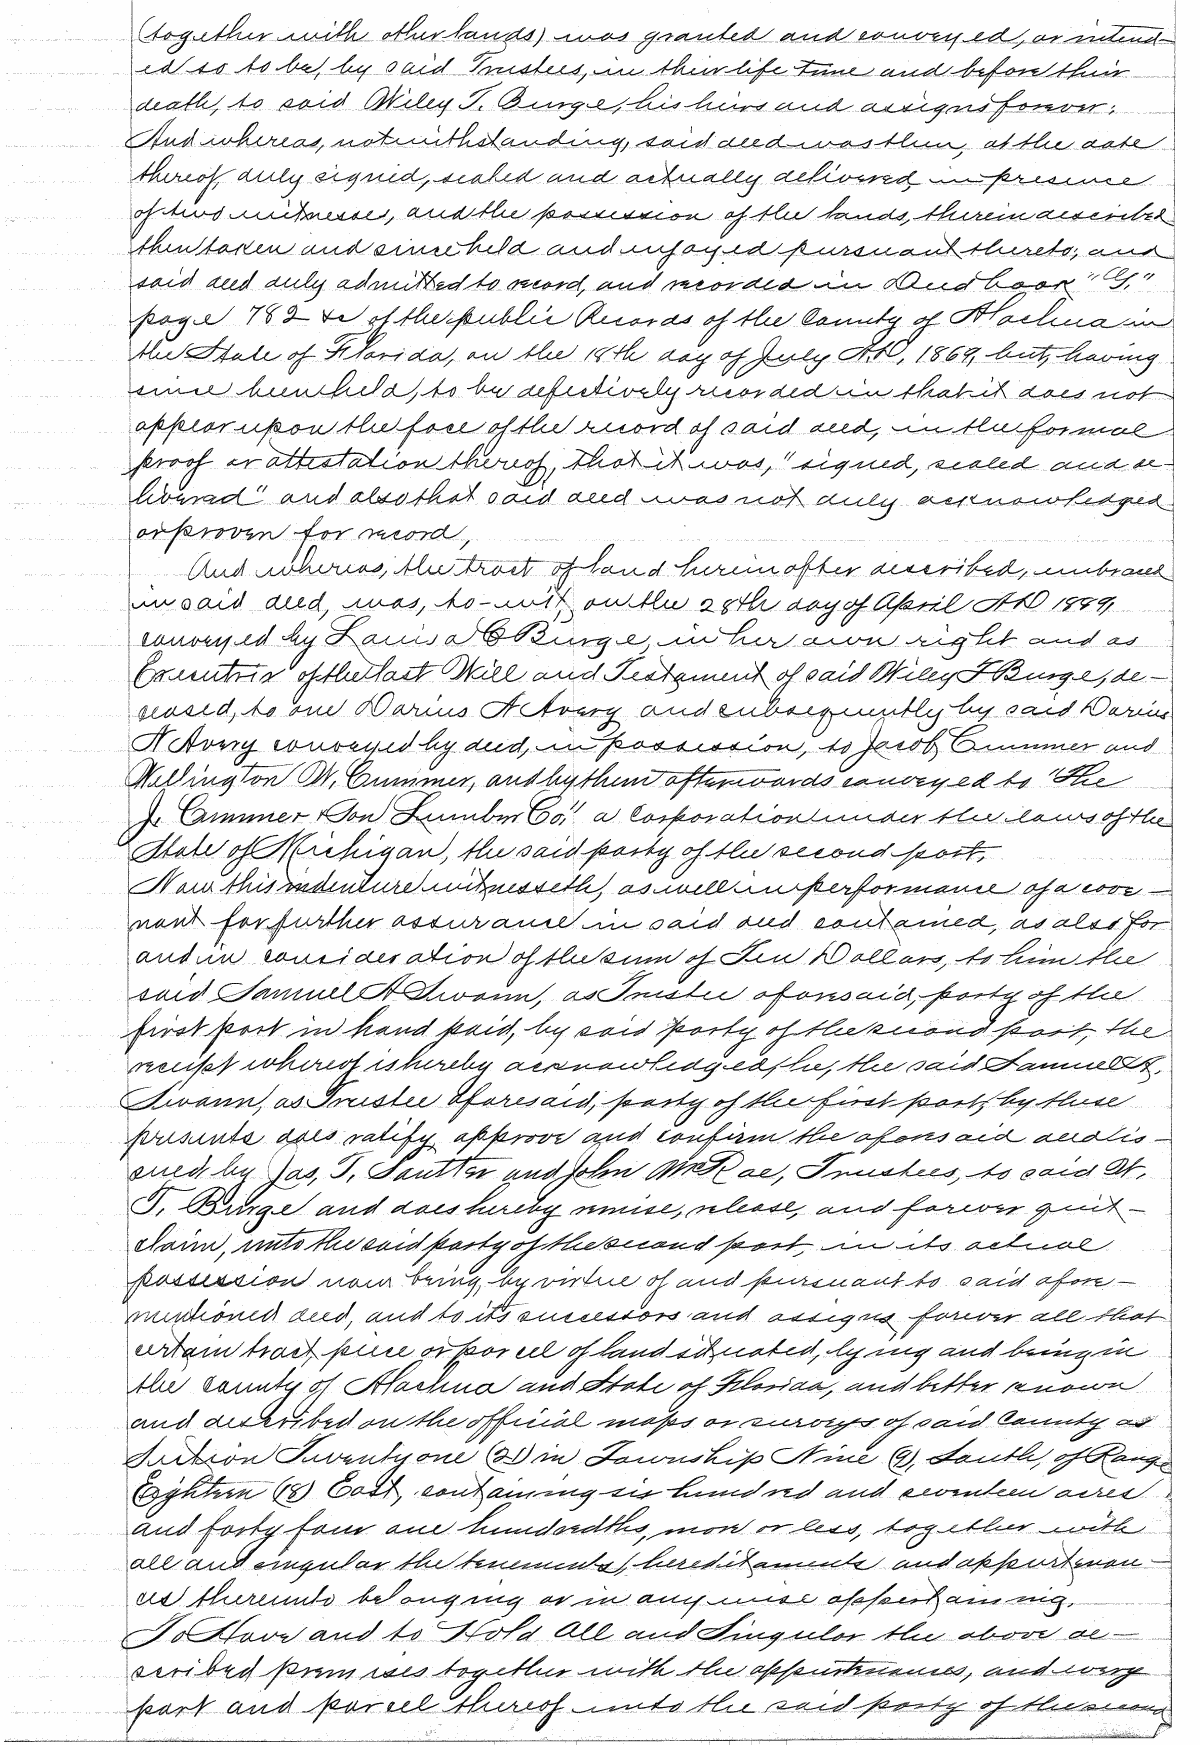 (together with other lands) was granted and conveyed, or intend-
ed so to be, by said Trustees, in their life time and before their
death, to said Wiley T. Burge, his heirs and assigns forever;
And whereas, notwithstanding, said deed was then, at the date
thereof, duly signed, sealed and actually delivered, in presence
of two witnesses, and the possession of the lands, therein described
then taken and since held and enjoyed pursuant thereto; and
said deed duly admitted to record, and recorded in Deed book "G,"
page 782 &c of the public Records of the County of Alachua in
the State of Florida, on the 18th day of July A.D, 1869, but, having
since been held, to be defectively recorded in that it does not
appear upon the face of the record of said deed, in the formal
proof or attestation thereof, that it was, "signed, sealed and de-
livered" and also that said deed was not duly acknowledged
or proven for record,
And whereas, the tract of land hereinafter described, embraced
in said deed, was, to-wit, on the 28th day of April A.D 1889,
conveyed by Louisa C Burge, in her own right and as
Executrix of the last Will and Testament of said Wiley T Burge, de-
ceased, to one Darius A Avery and subsequently by said Darius
A Avery conveyed by deed, in possession, to Jacob Cummer and
Wellington W, Cummer, and by them afterwards conveyed to "The
J. Cummer & Son Lumber Co," a Corporation under the laws of the
State of Michigan, the said party of the second part,
Now this indenture witnesseth, as well in performance of a cove-
nant for further assurance in said deed contained, as also for
and in consideration of the sum of Ten Dollars, to him the
said Samuel A Swann, as Trustee aforesaid, party of the
first part in hand paid, by said party of the second part, the
receipt whereof is hereby acknowledged, he, the said Samuel A,
Swann, as Trustee aforesaid, party of the first part, by these
presents does ratify, approve and confirm the aforesaid deed is-
sued by Jas, T. Soutter and John McRae, Trustees, to said W,
T, Burge and does hereby remise, release, and forever quit-
claim, unto the said party of the second part, in its actual
possession now being, by virtue of and pursuant to said afore-
mentioned deed, and to its successors and assigns, forever all that
certain tract, piece or parcel of land situated, lying and being in
the County of Alachua and State of Florida, and better known
and described on the official maps or surveys of said County as
Section Twenty one (21) in Township Nine (9), South, of Range
Eighteen (18) East, containing six hundred and seventeen acres
and forty four one hundredths, more or less, together with
all and singular the tenements, hereditaments and appurtenan-
ces thereunto belonging or in any wise appertaining,
To Have and to Hold All and Singular the above de-
scribed premises together with the appurtenances, and every
part and parcel thereof unto the said party of the second